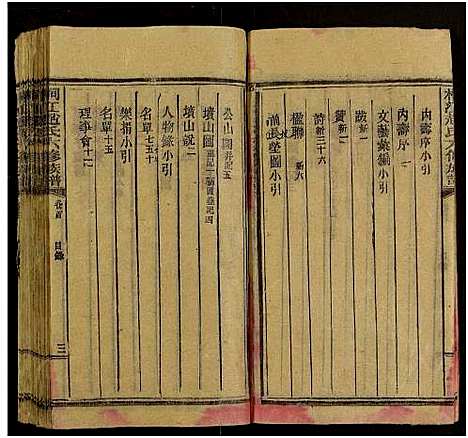 內壽序小引
內壽序一
文藝錄編小引
跋 新一
詩 新二三十六
楹聯 新六
塋圖小引
公山圖 五
墳山圖
墳山說一
人物錄小引
名單七五十
樂捐小引
名單十五
理事會十七
趙氏六修族譜
卷首
目錄
三
趙氏六修族譜